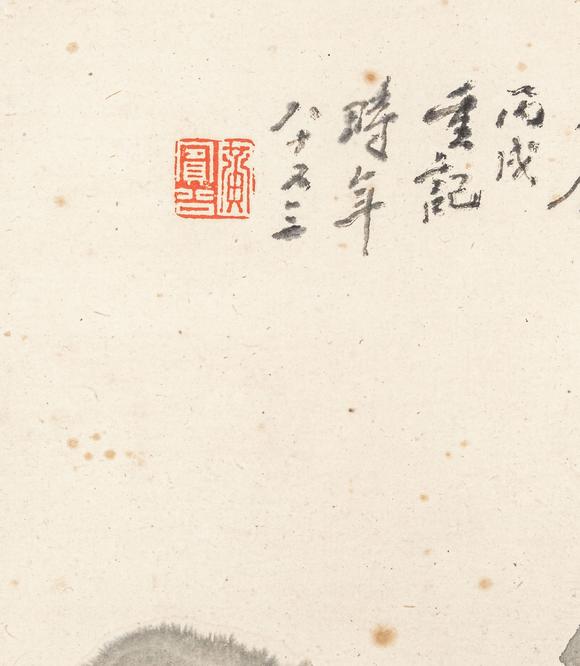 丙戌
重記
時年
八十又三
黃賓虹